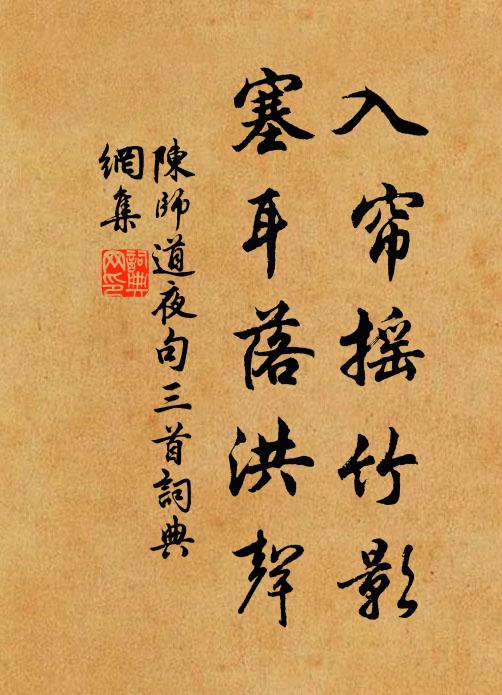 入帘摇竹影
塞耳落洪聲
陳師道夜句三首詞典
網集
詞典网印